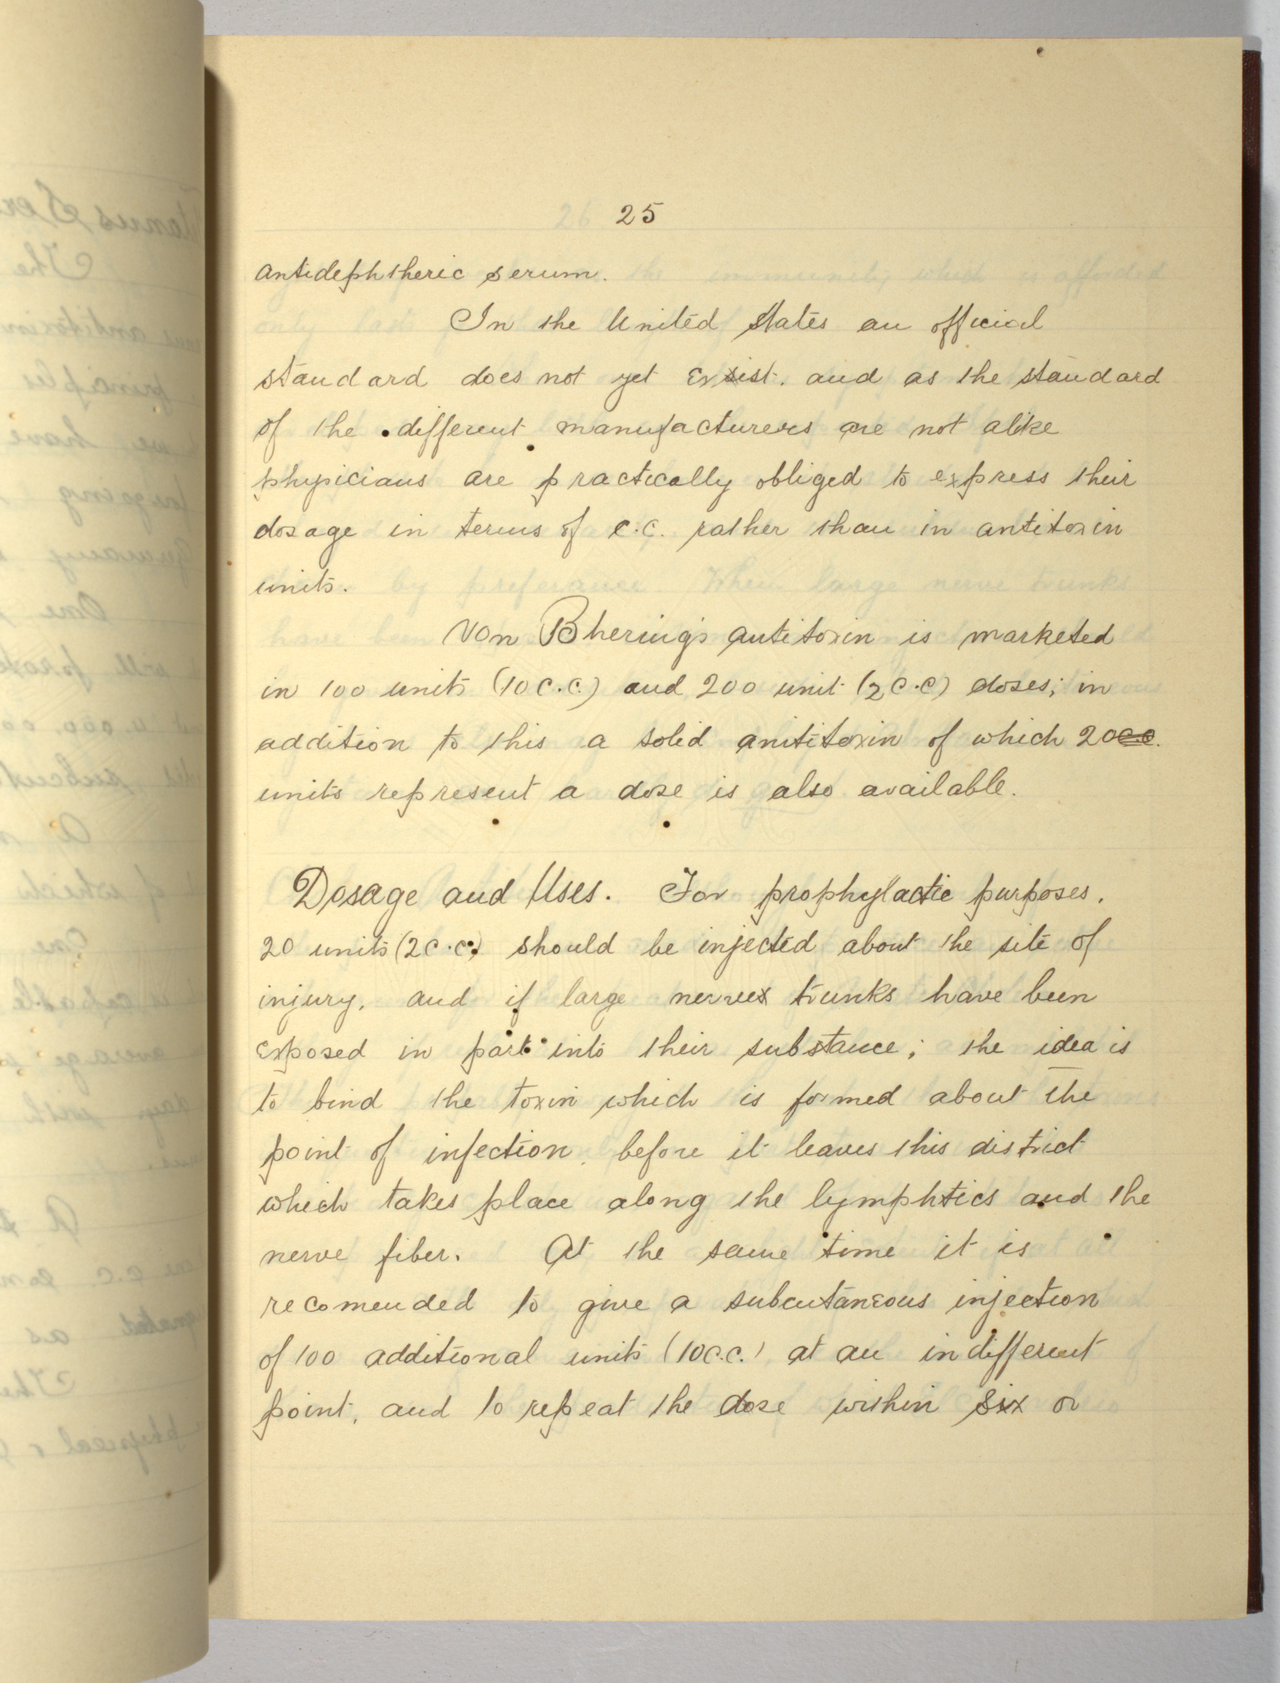 25
antidephtheric serum.
In the United States an official
standard does not yet exsist. and as the standard
of the different manufacturers are not alike
physicians are practically obliged to express their
dosage in terms of c.c. rather than in antitoxin
units.
Von Bhering's antitoxin is marketed
in 100 units (10 c.c.) and 200 unit (2 c.c) doses; in
addition to this a solid anititoxin of which 20
units represent a dose is also available.
Dosage and Uses. For prophylactic purposes,
20 units (2 c.c.) should be injected about the site of
injury, and if large nerves trunks have been
exposed in part into their substance; the idea is
to bind the toxin which is formed about the
point of infection before it leaves this district
which takes place along the lymphtics and the
nerve fiber. At the same time it is
recomended to give a subcutaneous injection
of 100 additional units (10 c.c.) at an indifferent
point, and to repeat the dose within six or